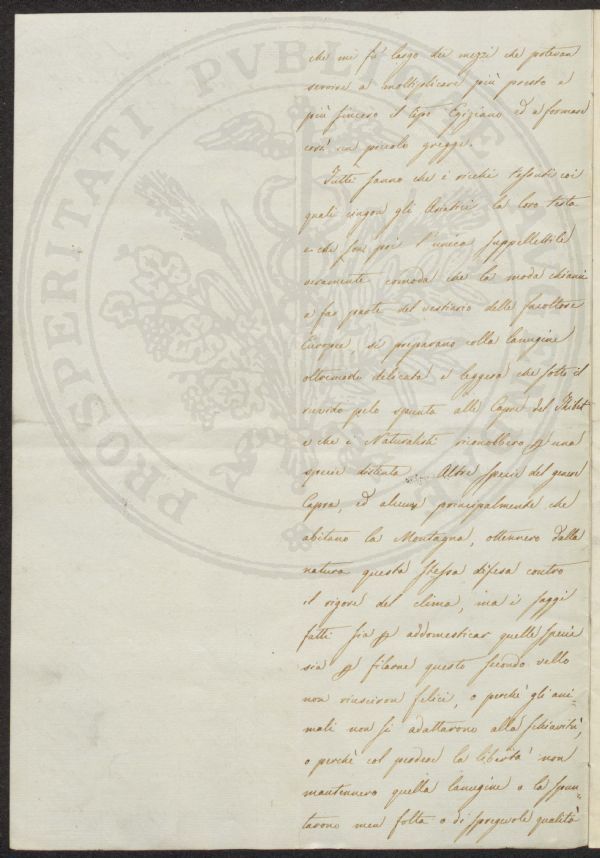 che mi fu largo dei mezzi che potevan
servire a moltiplicare più presto e
più sincero il tipo Egiziano ed a formare
così un piccolo gregge.
Tutti sanno che i ricchi tessuti coi
quali cingon gli Asiatici la loro testa
e che son poi l'unica suppellettile
veramente comoda che la moda chiami
a far parte del vestiario delle facoltose
Europee, si preparano colla lanugine
oltremodo delicata e leggera che sotto il
ruvido pelo spunta alle Capre del Thibet
e che i Naturalisti riconobbero p una
specie distinta. Altre specie del genere
Capra, ed alcune principalmente che
abitano la Montagna, ottennero dalla
natura questa stessa difesa contro
il rigore del clima, ma i saggi
fatti sia p addomesticar quelle specie
sia p filarne questo secondo vello
non riusciron felici, o perchè gli ani=
mali non si adattarono alla schiavitù,
o perchè col perdere la libertà non
mantennero quella lanugine o la spun=
tarono men folta o di spregevole qualità
PROSPERITATI PUBLICAE AUGENDAE